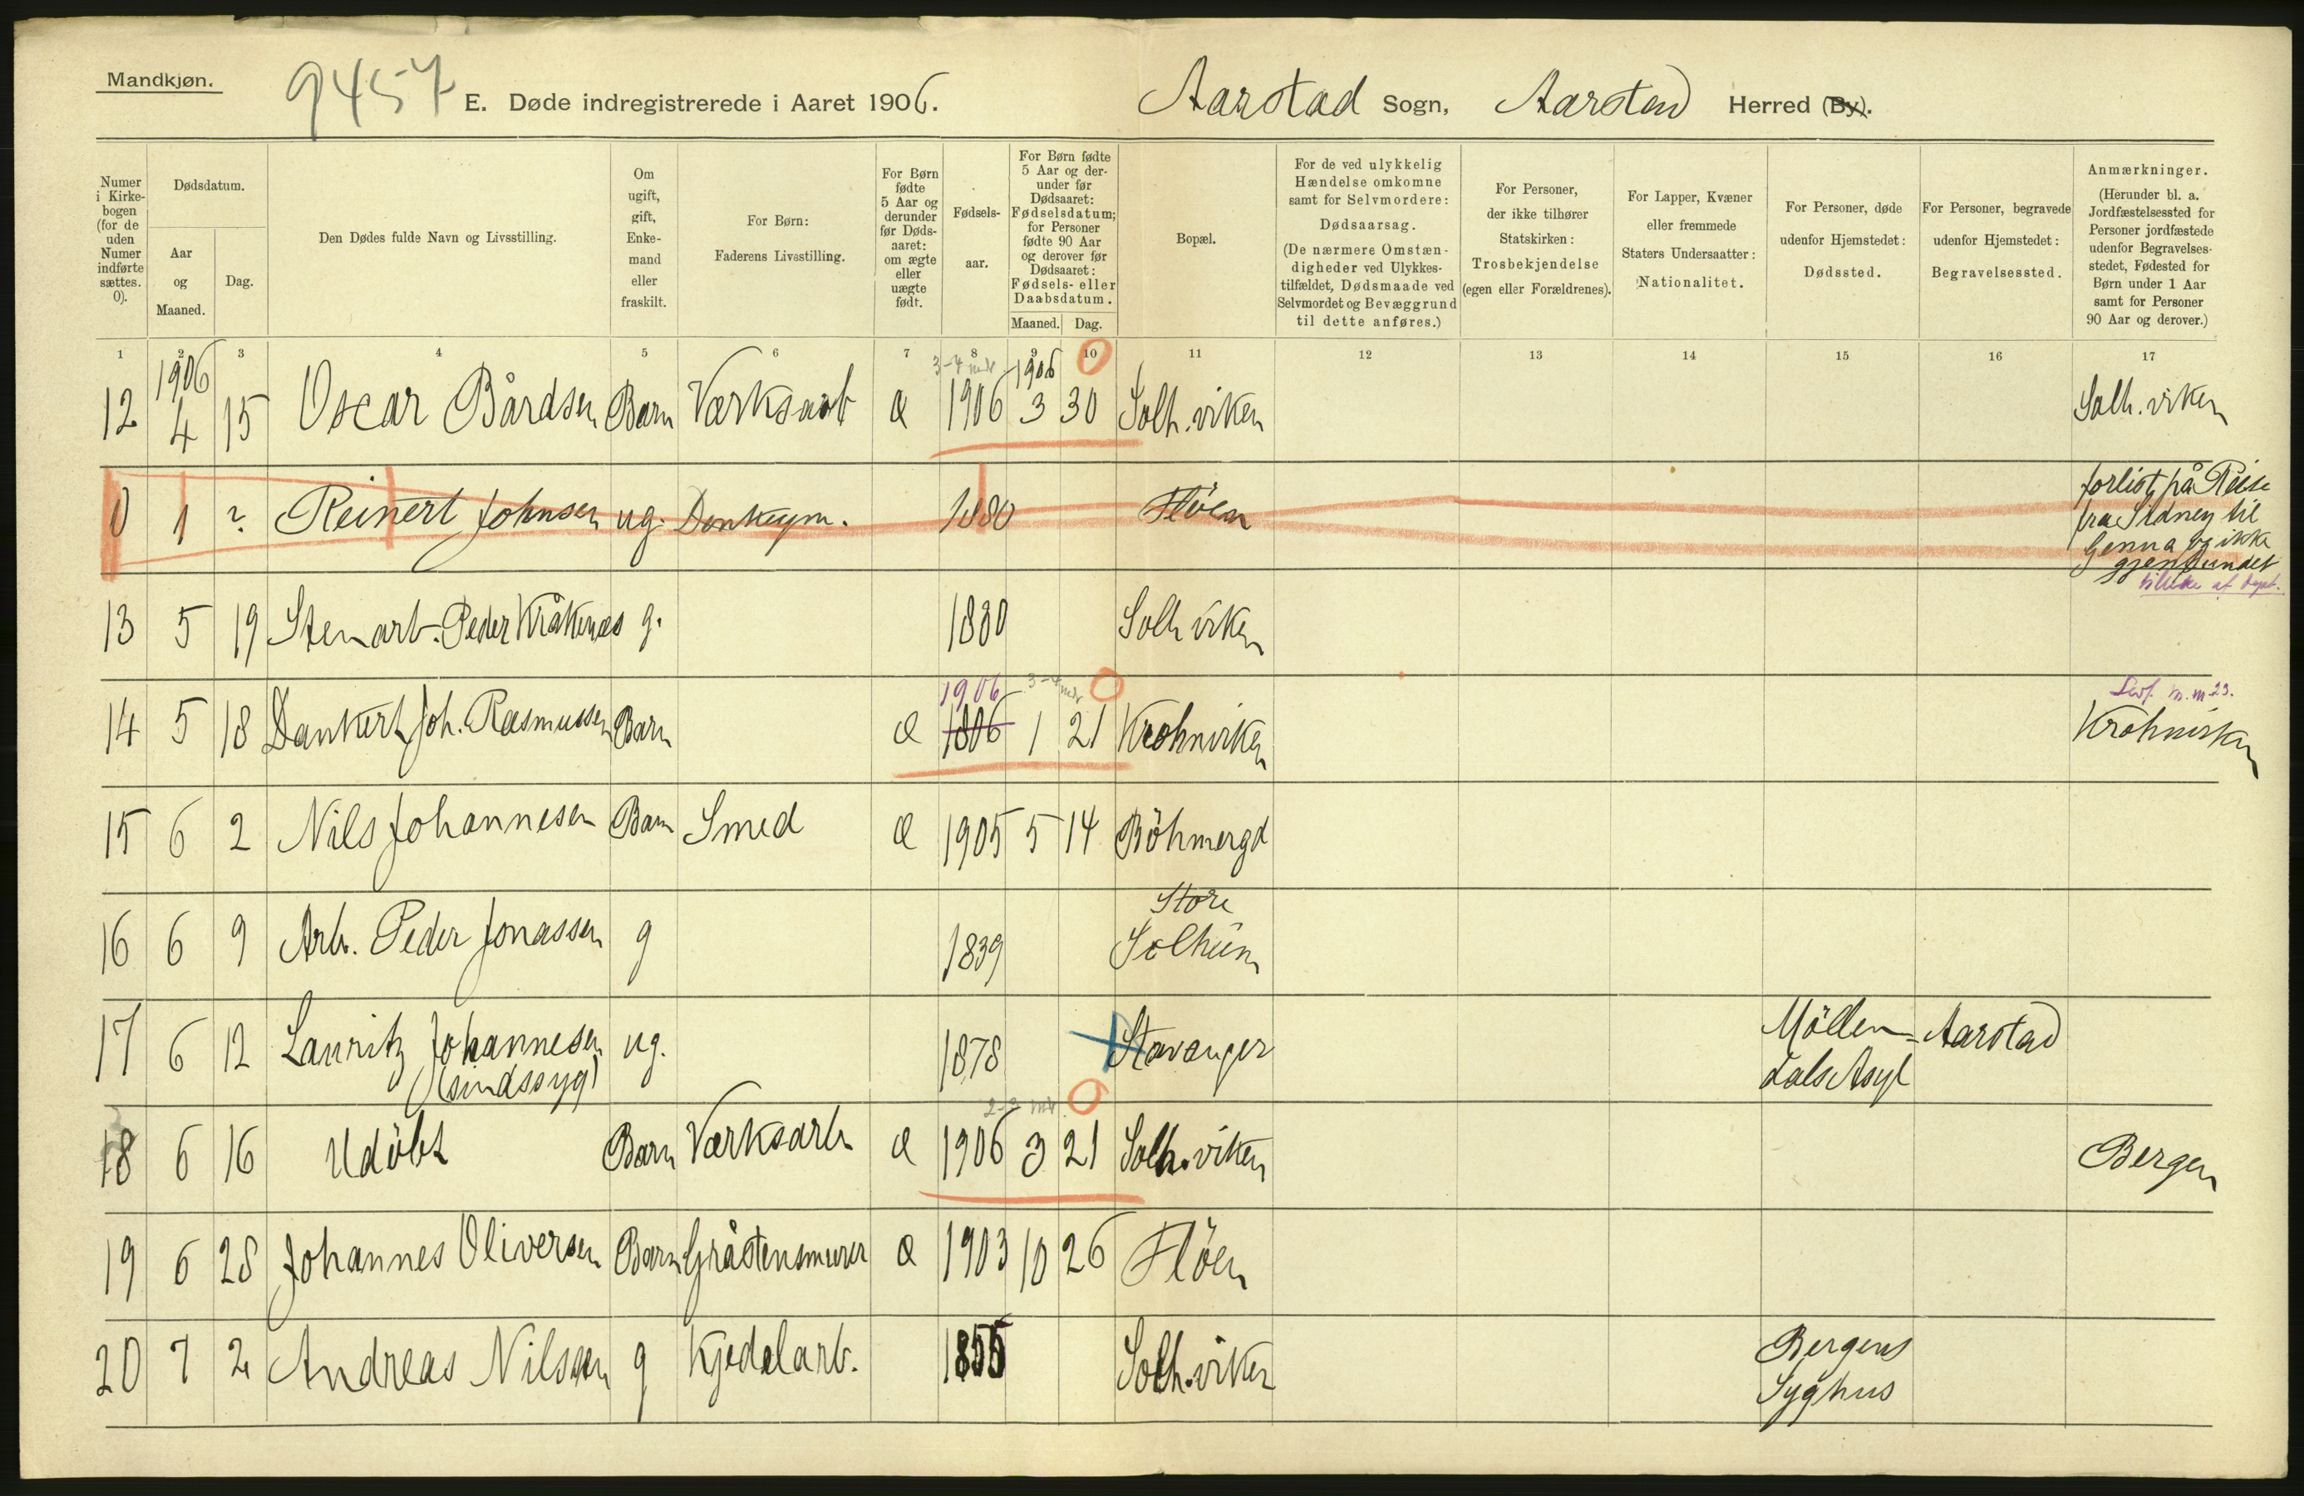 Mandkjøn.
9457
E. Døde indregistrerede i Aaret 1906.
Aarstad Sogn, Aarstad Herred (By).
Numer i Kirkebogen (for de uden Numer indførte sættes. 0).
Dødsdatum.
Aar og Maaned.
Dag.
Den Dødes fulde Navn og Livsstilling.
Om ugift, gift, Enkemand eller fraskilt.
For Børn: Faderens Livsstilling.
For Børn fødte 5 Aar og derunder før Dødsaaret: om ægte eller uægte født.
Fødselsaar.
For Børn fødte 5 Aar og derunder før Dødsaaret: Fødselsdatum; for Personer fødte 90 Aar og derover før Dødsaaret: Fødsels- eller Daabsdatum.
Maaned. Dag.
Bopæl.
For de ved ulykkelig Hændelse omkomne samt for Selvmordere: Dødsaarsag. (De nærmere Omstændigheder ved Ulykkestilfældet, Dødsmaade ved Selvmordet og Bevæggrund til dette anføres.)
For Personer, der ikke tilhører Statskirken: Trosbekjendelse (egen eller Forældrenes).
For Lapper, Kvæner eller fremmede Staters Undersaatter: Nationalitet.
For Personer, døde udenfor Hjemstedet: Dødssted.
For Personer, begravede udenfor Hjemstedet: Begravelsessted.
Anmærkninger. (Herunder bl. a. Jordfæstelsessted for Personer jordfæstede udenfor Begravelsesstedet, Fødested for Børn under 1 Aar samt for Personer 90 Aar og derover.)
1 2 3 4 5 6 7 8 9 10 11 12 13 14 15 16 17
1906 3-4 mdr 1906 0
12 4 15 Oscar Bårdsen Barn Værksarb Æ 1906 3 30 Solh.viken Solh.viken
0 1 ? Reinert Johnsen ug. Donkeym. 1880 Flöen forlist på Reise
fra Sidney til
Genua og ikke
gjenfundet
13 5 19 Stenarb. Peder Kråkenes g. 1830 Solh viken
1906 3-4 mdr 0
14 5 18 Dankert Joh. Rasmussen Barn Æ 1806 1 21 Krohnviken Krohnviken
15 6 2 Nils Johannesen Barn Smed Æ 1905 5 14 Böhmergd
16 6 9 Arb. Peder Jonassen g 1839 Store
Solheim
17 6 12 Lauritz Johannesen ug. 1878 Stavanger Möllen= Aarstad
(sindssyg) dals Asyl
2-3 mdr. 0
18 6 16 Udöbt Barn Værksarb Æ 1906 3 21 Solh.viken Bergen
19 6 28 Johannes Oliversen Barn Gråstensmurer Æ 1903 10 26 Flöen
20 7 2 Andreas Nilsen g Kjedelarb. 1855 Solh.viken Bergens
Syghus